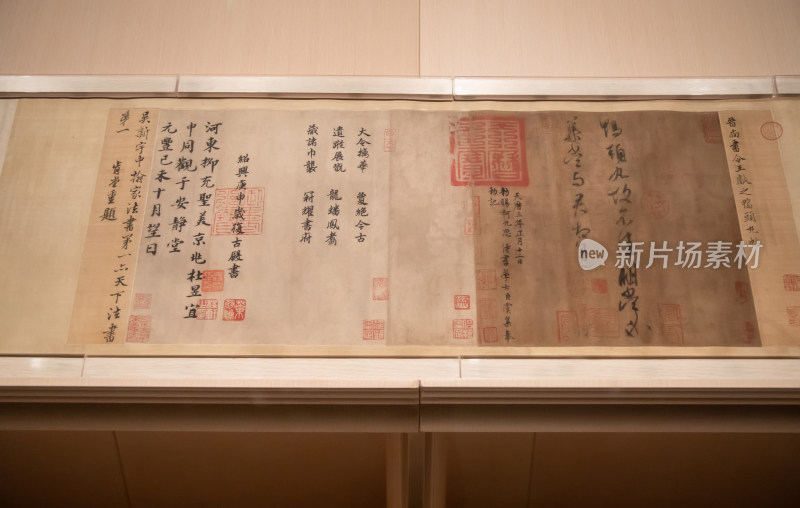 晉尚書令王獻之鴨頭丸
鴨頭丸故不佳明當必
集當與君相
天曆三年正月十二日
敕賜柯九思 侍書學士臣虞集奉
敕記
大令摛華 敻絕今古
遺蹤展翫 龍蟠鳳翥
藏諸巾襲 冠耀書府
紹興庚申歲復古殿書
河東柳充聖美京兆杜昱宜
中同觀于安靜堂
元豐己未十月望日
吳新宇中翰家法書第一亦天下法書
第一 肯堂重題
new 新图网